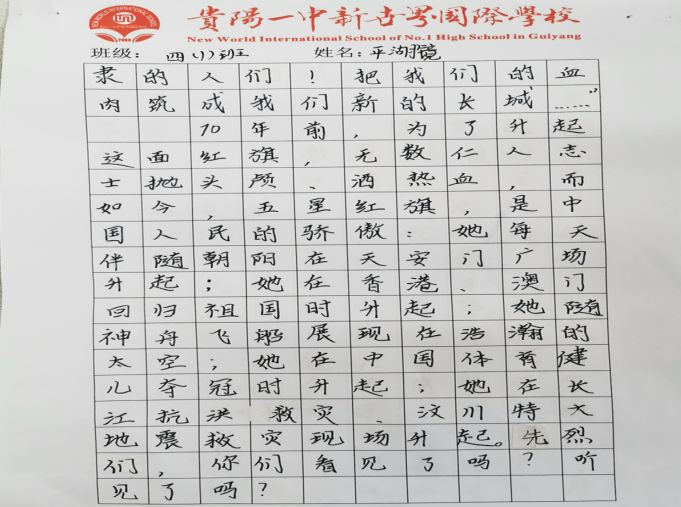 貴陽一中新世界國際學校
New World International School of No.1 High School in Guiyang
班级：四（1）班 姓名：平湖镜
隶的人们！把我们的血
肉筑成我们新的长城……”
70年前，为了升起
这面红旗，无数仁人志
士抛头颅、洒热血，而
如今，五星红旗，是中
国人民的骄傲：她每天
伴随朝阳在天安门广场
升起；她在香港、澳门
回归祖国时升起；她随
神舟飞船展现在浩瀚的
太空；她在中国体育健
儿夺冠时升起；她在长
江抗洪救灾、汶川特大
地震救灾现场升起。先烈
们，你们看见了吗？听
见了吗？